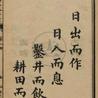 日出而作
日入而息
鑿井而飲
耕田而